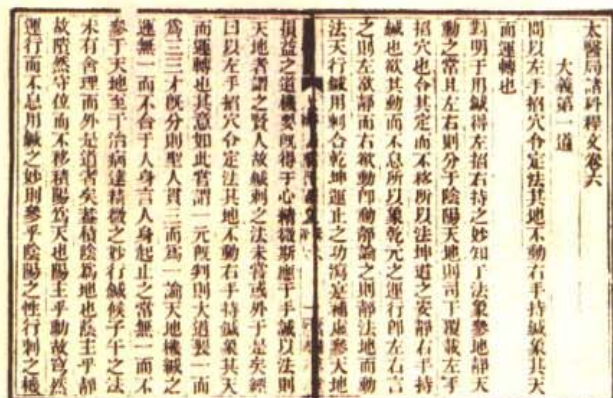 太醫局諸科程文卷六
大義第一道
問以左手招穴令定法其地不動右手持鍼象其天
而運轉也
對明于用鍼得左招右持之妙知丁法象參地靜天
動之常且左右則分于陰陽天地則司丁覆載左手
招穴也合其定而不移所以法坤道之安靜右手持
鍼也欲其動而不息所以象乾元之運行即左右言
之則左欲靜而右欲動即動靜論之則靜法地而動
法天行鍼用刺合乾坤運止之功瀉實補虛參天地
損益之道機要既得于心精微斯應于手誠以法則
天地者謂之賢人故鍼刺之法未嘗或外于是矣經
曰以左手招穴令定法其地不動右手持鍼象其天
而運轉也其意如此嘗謂一元既判則大道製一而
為三三才既分則聖人貫三而為一論天地機緘之
運無一而不合于人身言人身起止之常無一而不
參于天地至于治病達精微之妙行鍼候子午之法
未有舍理而外是道者矣蓋積陰為地也陰主乎靜
故隤然守位而不移積陽為天也陽主乎動故確然
運行而不息用鍼之妙則參乎陰陽之性行刺之機